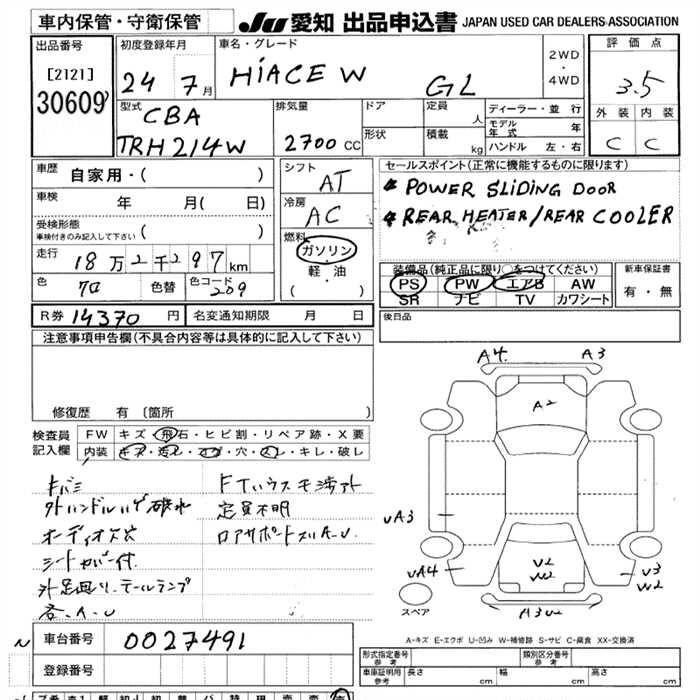 車内保管・守衛保管
JU 愛知 出品申込書 JAPAN USED CAR DEALERS ASSOCIATION
出品番号
[2121]
30609
初度登録年月
24 7月
車名・グレード
HIACE W GL
2WD
・
4WD
評価点
3.5
外装 内装
C C
型式
CBA
TRH214W
排気量
2700 CC
ドア
形状
定員 人
積載 kg
ディーラー・並行
モデル年式 年
ハンドル 左・右
車歴 自家用・( )
車検 年 月( 日)
受検形態
車検付きのみ記入して下さい ( )
走行 18万2千297km
色 クロ 色替 色コード 209
シフト
AT
冷房
AC
燃料
ガソリン
・
軽・油
( )
セールスポイント(正常に機能するものに限ります)
POWER SLIDING DOOR
REAR HEATER/REAR COOLER
装備品(純正品に限り〇をつけてください)
PS PW エアB AW
SR ナビ TV カワシート
新車保証書
有・無
R券 14370円 名変通知期限 月 日
後日品
注意事項申告欄(不具合内容等は具体的に記入して下さい)
修復歴 有 〔箇所 〕
検査員記入欄
FW キズ・飛石・ヒビ割・リペア跡・X要
内装 キズ・汚レ・コゲ・穴・スレ・キレ・破レ
外ハンドルハゲ破レ
オーディオ欠
シートカバー付
テールランプ
各、A、U
定員不明
A4 A3
A2
UA3
UA4
U2
W2
U3
W2
A3U2
スペア
A-キズ E-エクボ U-凹み W-補修跡 S-サビ C-腐食 XX-交換済
車台番号 0027491
登録番号
形式指定番号
参考
類別区分番号
参考
車庫証明用
参考
長さ cm 幅 cm 高さ cm